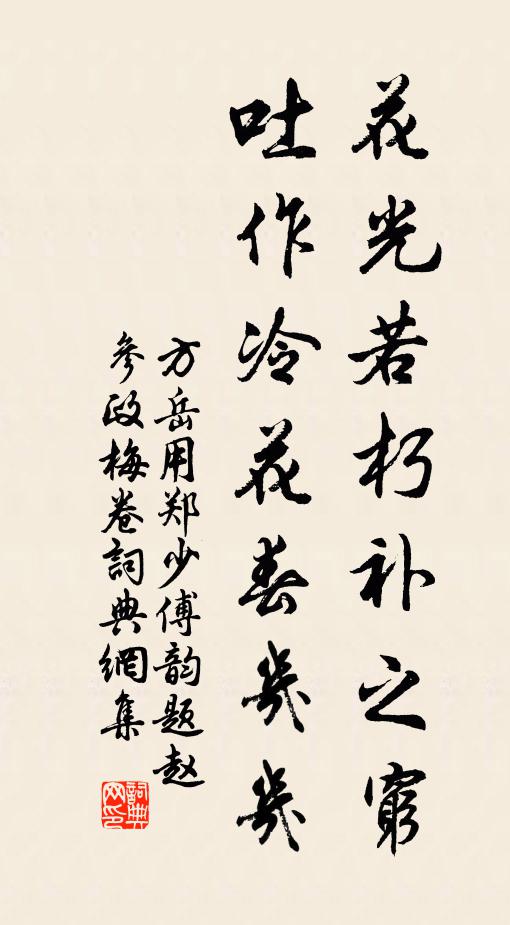 花光若朽补之窮
吐作冷花春幾幾
方岳用郑少傅韵题赵
參政梅卷詞典網集
詞典网印